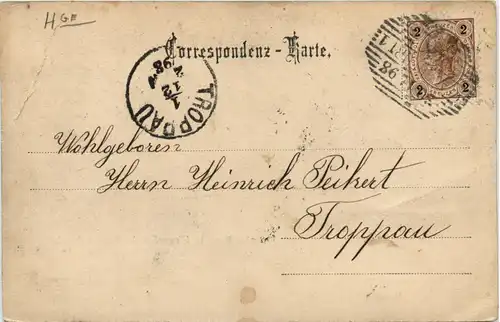 HGE
Correspondenz-Karte.
TROPPAU
1
12
98
2 2
2 2
Wohlgeboren
Herrn Heinrich Peikert
Troppau